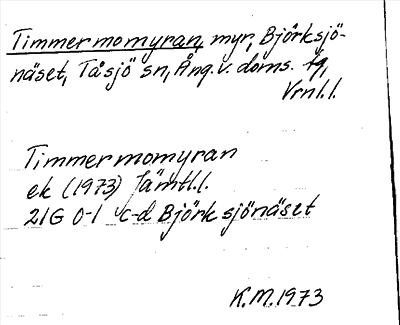 Timmermomyran, myr, Björksjö-
näset, Tåsjö sn, Ång. v. doms. tg,
Vrnl.l.
Timmermomyran
ek (1973) Jämtl.l.
21G 0-1 c-d Björksjönäset
K.M. 1973